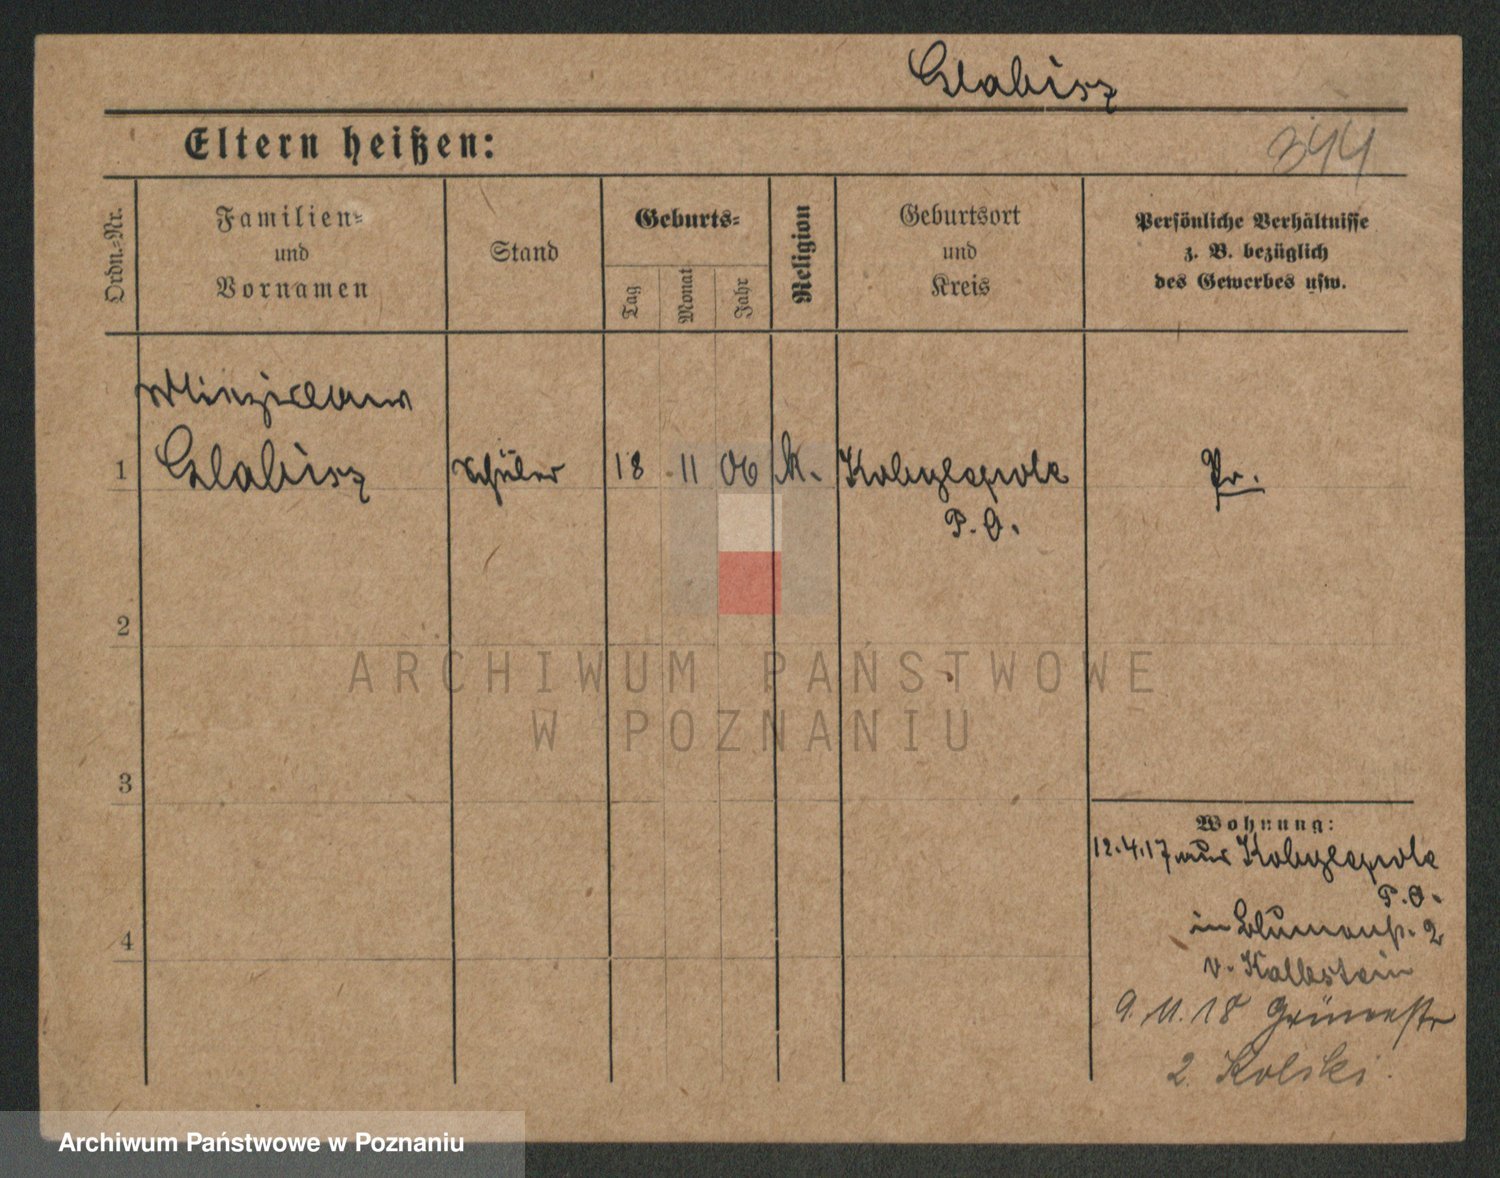 Glabisz
Eltern heißen:
344
Ordn.-Nr.
Familien-
und
Vornamen
Stand
Geburts-
Tag
Monat
Jahr
Religion
Geburtsort
und
Kreis
Persönliche Verhältnisse
z. B. bezüglich
des Gewerbes usw.
1
Glabisz
Schüler
18
11
06
k.
Kobylepole
P. O.
Pr.
2
3
4
Wohnung:
12.4.17 aus Kobylepole
P. O.
in Blumenstr. 2
v. Kalkstein
9. 11. 18 Grünestr
2. Kolski.
ARCHIWUM PAŃSTWOWE
W POZNANIU
Archiwum Państwowe w Poznaniu